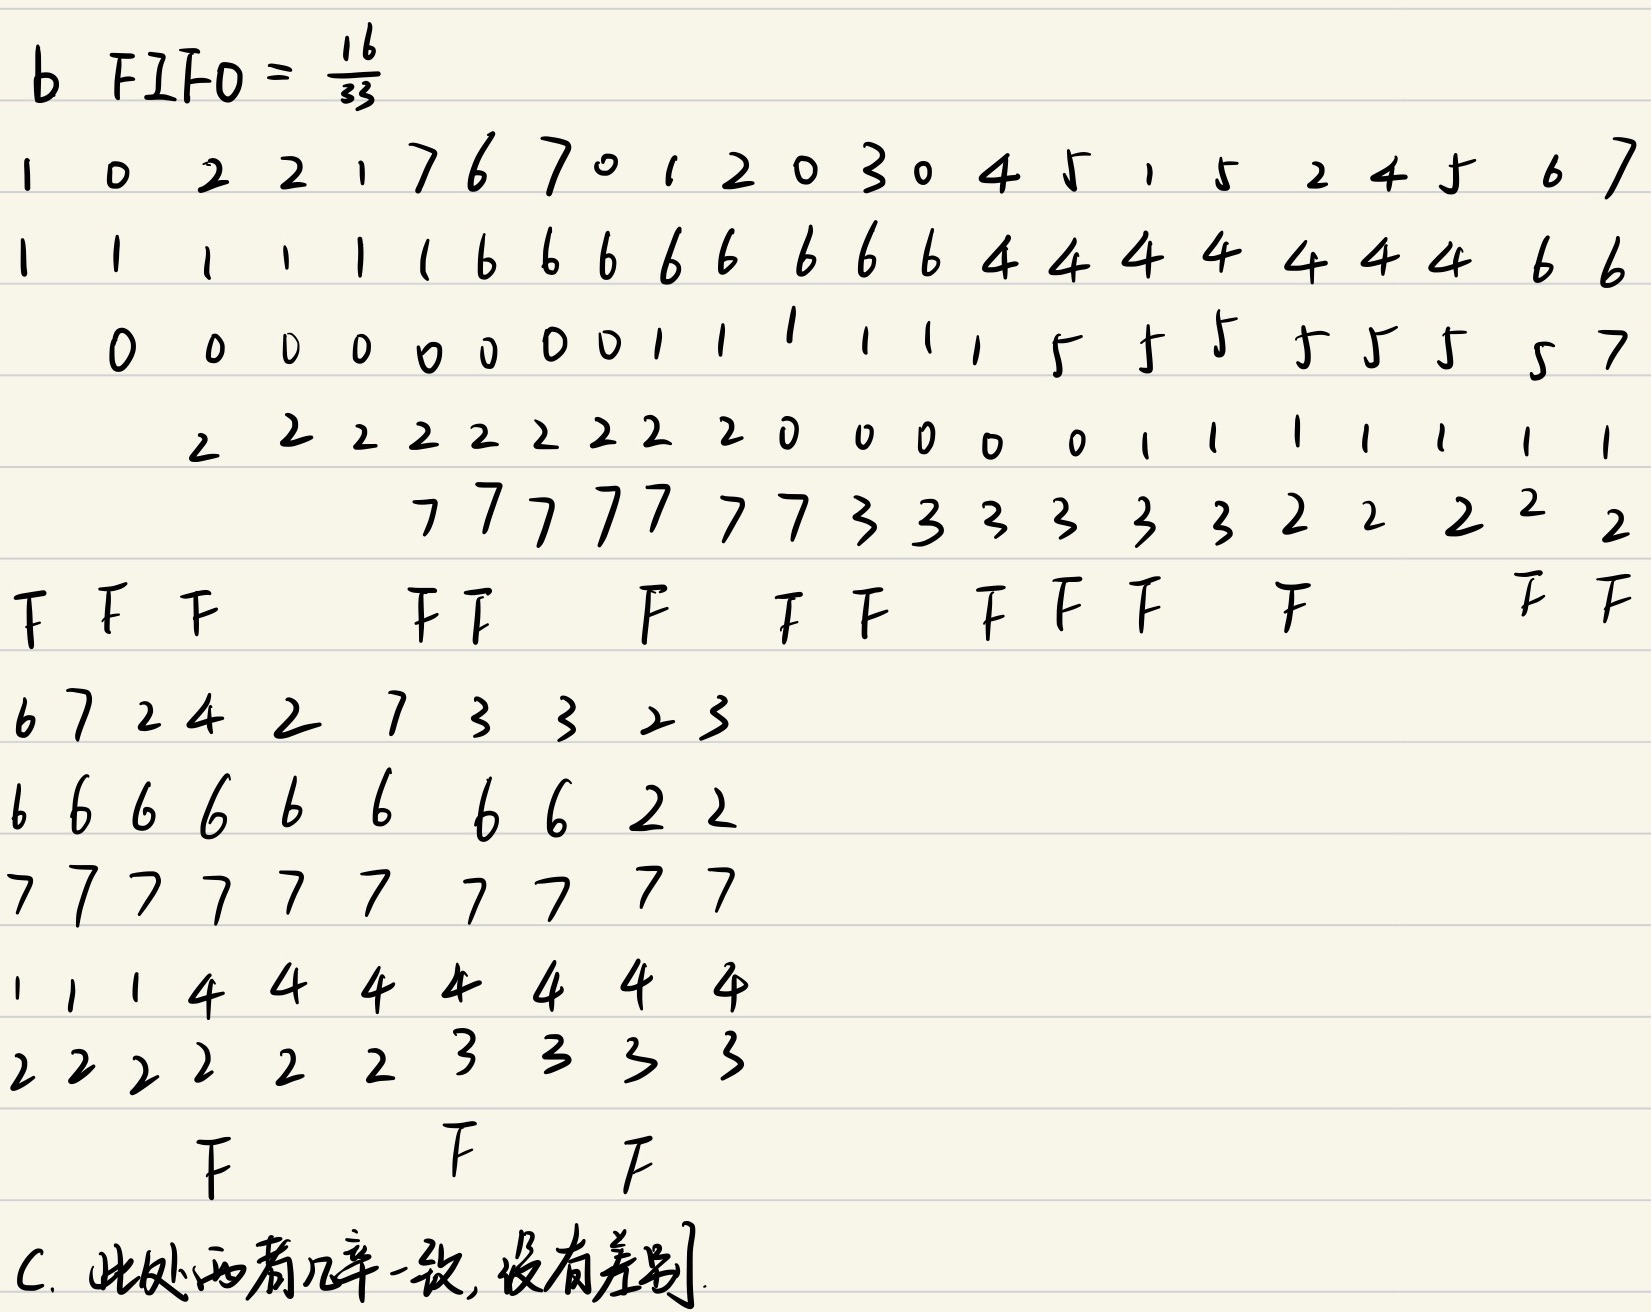 b FIFO = 16/33
1 0 2 2 1 7 6 7 0 1 2 0 3 0 4 5 1 5 2 4 5 6 7
1 1 1 1 1 1 6 6 6 6 6 6 6 6 4 4 4 4 4 4 4 6 6
0 0 0 0 0 0 0 0 1 1 1 1 1 1 5 5 5 5 5 5 5 7
2 2 2 2 2 2 2 2 2 0 0 0 0 0 1 1 1 1 1 1 1
7 7 7 7 7 7 7 3 3 3 3 3 3 2 2 2 2 2
F F F F F F F F F F F F F F
6 7 2 4 2 7 3 3 2 3
6 6 6 6 6 6 6 6 2 2
7 7 7 7 7 7 7 7 7 7
1 1 1 4 4 4 4 4 4 4
2 2 2 2 2 2 3 3 3 3
F F F
C. 此处两者几率一致,没有差别.